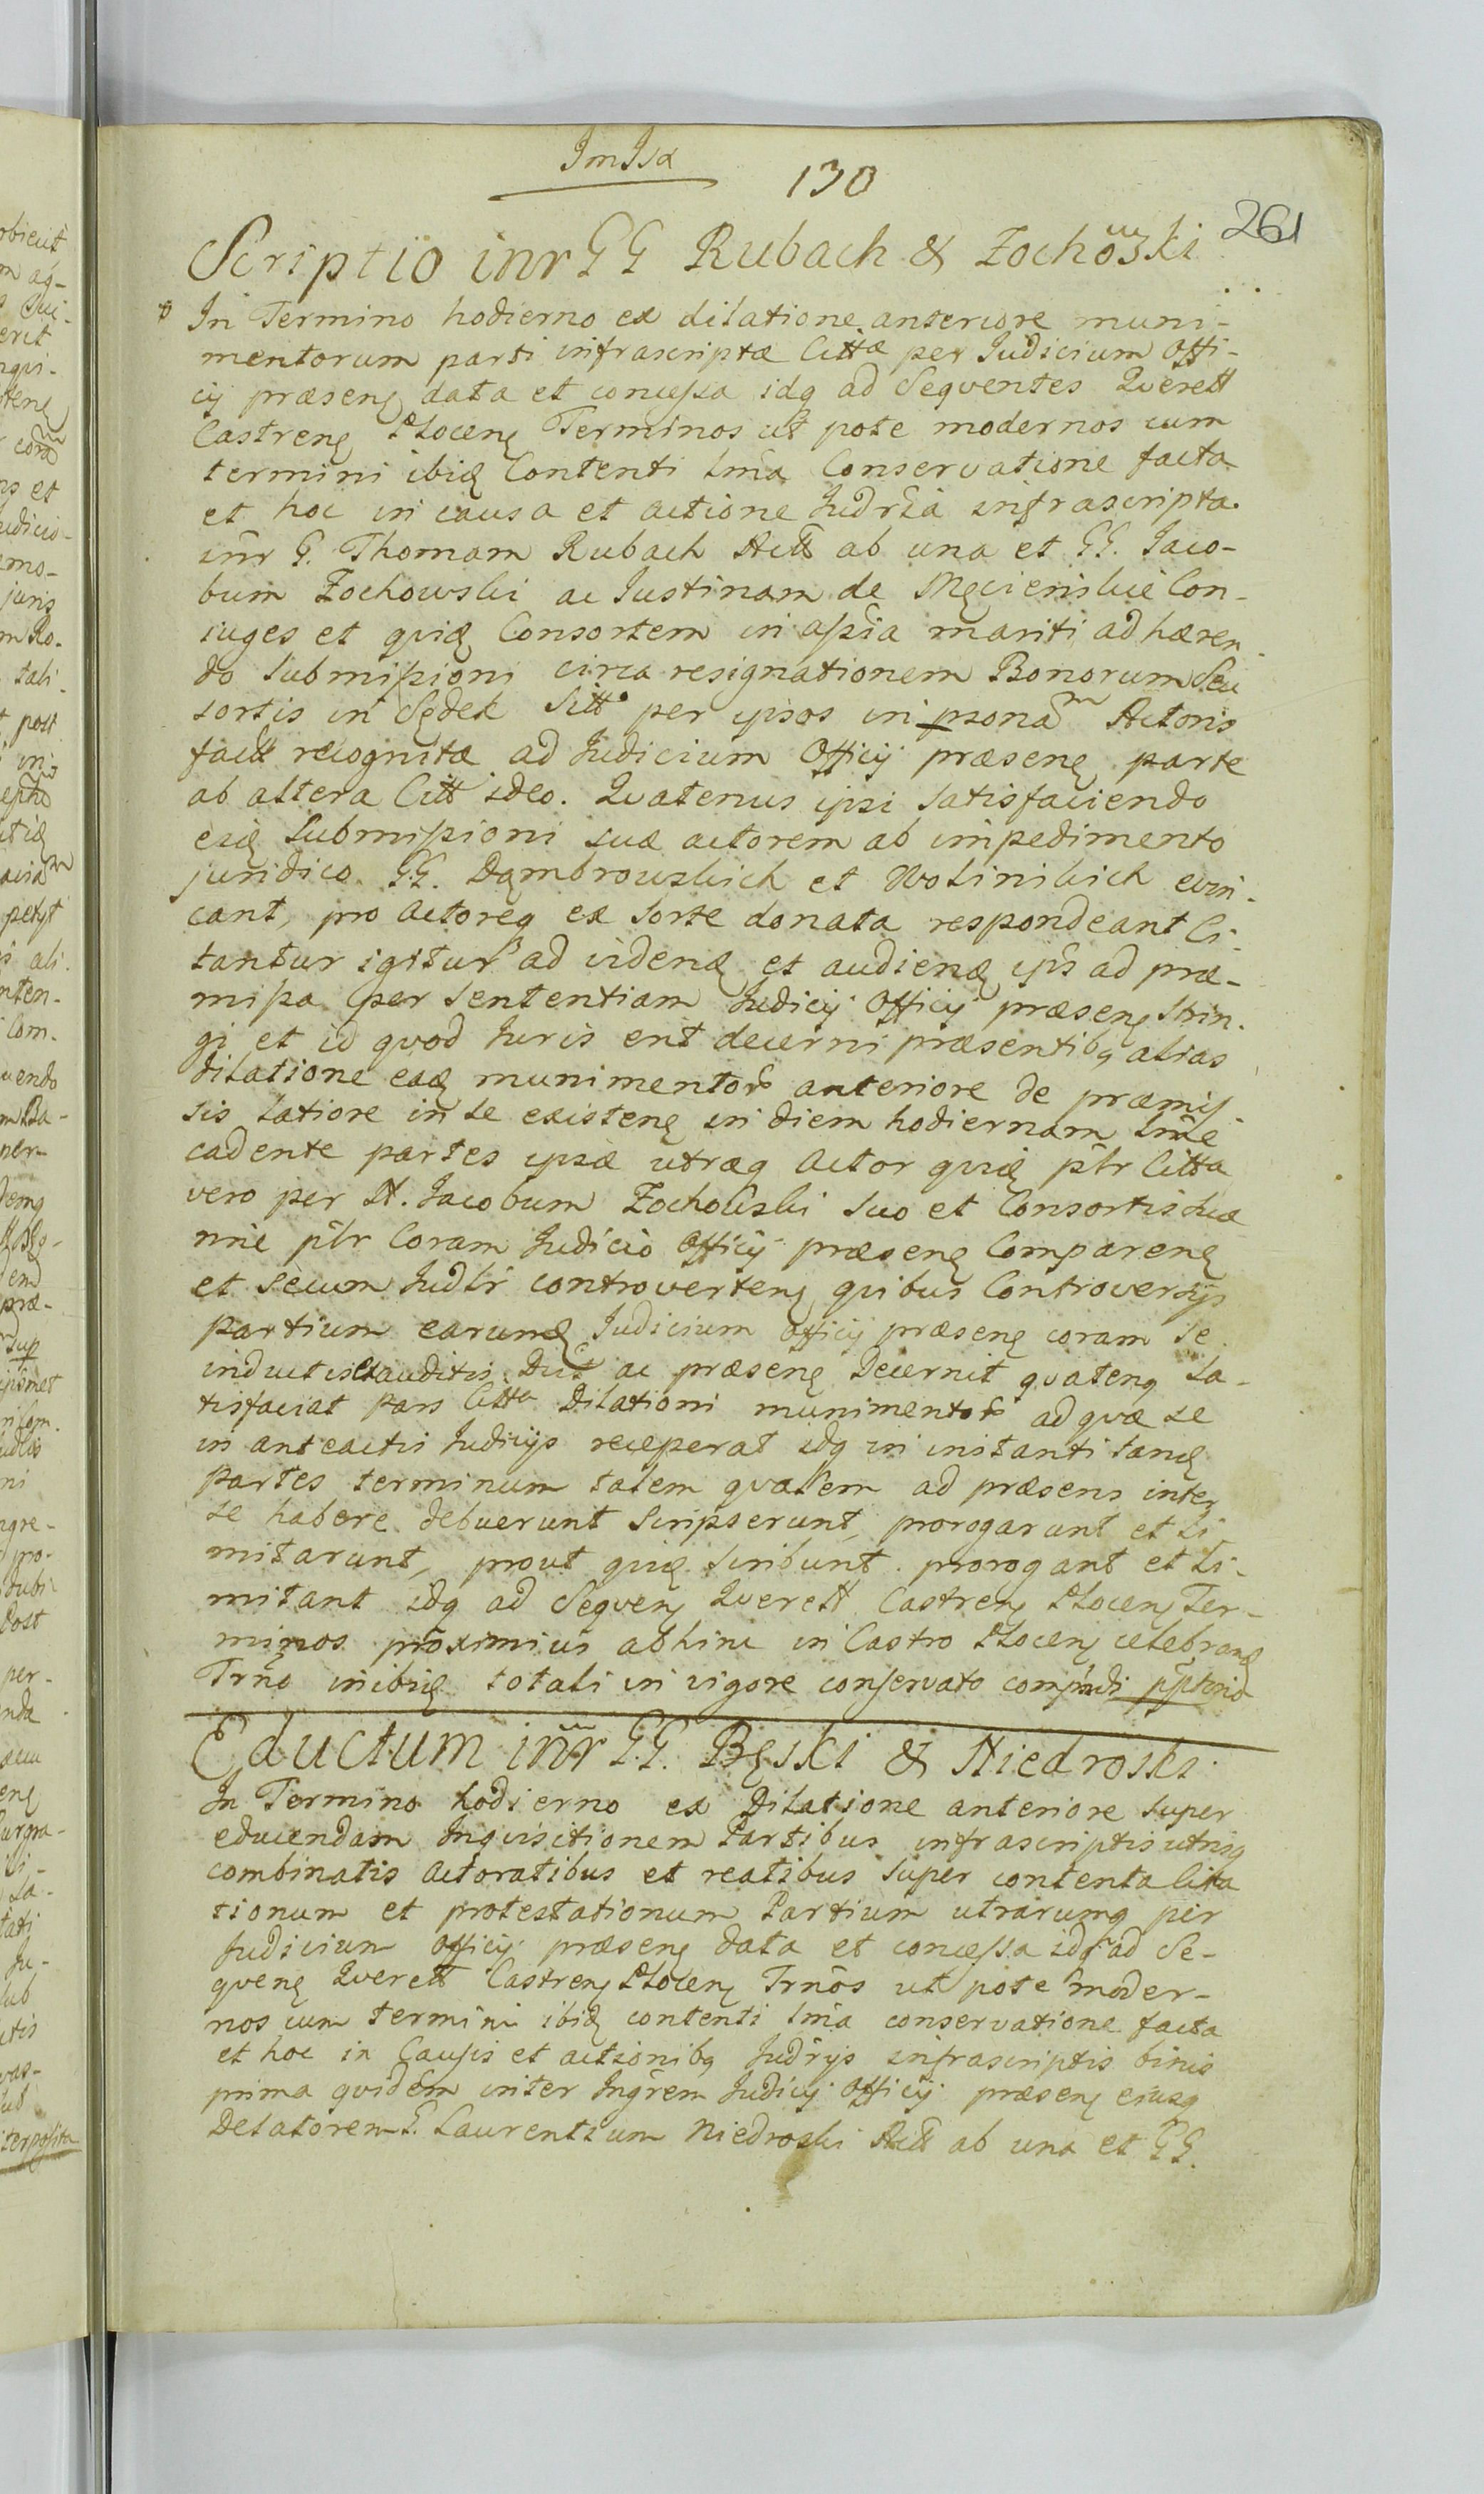 130
261
Scriptio inr GG Rubach & Zochowski
In Termino hodierno ex dilatione anteriore muni-
mentorum parti infrascriptæ Cittæ per Judicium Offi-
cij præsenę data et concessa idq ad Seqventes Qverell
Castrenę Plocenę Terminos ut pote modernos cum
termini ibid Contenti lmã Conservatione facta
et hoc in causa et actione Judria infrascripta
inr G. Thomam Rubach Actt ab una et GG. Jaco-
bum Zochowski ac Justinam de Męcienskie Con-
juges et qvid Consortem in assia mariti adhæren-
do Submissioni circa resignationem Bonorum Seu
sortis in Sędek Sitt per ipsos in psonam Actoris
factt recognitæ ad Judicium Officij præsenę parte
ab altera Citt ideo. Qvatenus ipsi Satisfaciendo
eid Submissioni suæ actorem ab impedimento
juridico GG. Dąmbrowskich et Wolinskich evin-
cant, pro Actoreq ex sorte donata respondeant Ci-
tantur igitur ad videnđ et audienđ ips ad præ-
missa per Sententiam Judicij Officij præsenę strin-
gi et id qvod Juris erit decerni præsentibq alias
dilatione ead munimentor anteriore de præmis-
sis latiore in se existenę in diem hodiernam lme
cadente partes ipsæ utræq Actor qvid plr Citta
vero per N. Jacobum Zochowski suo et Consortis suæ
nnie plr Coram Judicio Officij præsenę Comparenę
et secum Judlr controvertenę qvibus Controversijs
partium earund Judicium Officij præsenę coram se
inductis et auditis Dict ac præsenę Decernit qvatenq sa-
tisfaciat Pars Citta Dilationi munimentor ad qvæ se
in anteactis Judicijs receperat idq in instanti tand
Partes terminum talem qvalem ad præsens inter
se habere debuerunt Scripserunt, prorogarunt et li-
mitarunt, prout qvid scribunt prorogant et li-
mitant idq ad Seqvenę Qverell Castrenę Plocenę Ter-
minos proximius abhinc in Castro Plocenę celebrand
Trño inibid totali in vigore conservato
Eductum inr GG. Bęski & Niedroski
In Termino hodierno ex Dilatione anteriore super
educendam Inqvisitionem Partibus infrascriptis utrisq
combinatis Actoratibus et reatibus super contenta Cita
tionum et protestationum Partium utrarumq per
Judicium Officij præsenę data et concessa idq ad Se-
qvenę Qverell Castrenę Plocenę Trños ut pote moder-
nos cum termini ibid contenti lmã conservatione facta
et hoc in Causis et actionibq Judrijs infrascriptis binis
prima qvidem inter Ingrem Judicij Officij præsenę ejusq
Delatorem G. Laurentium Niedroski Actt ab una et GG.